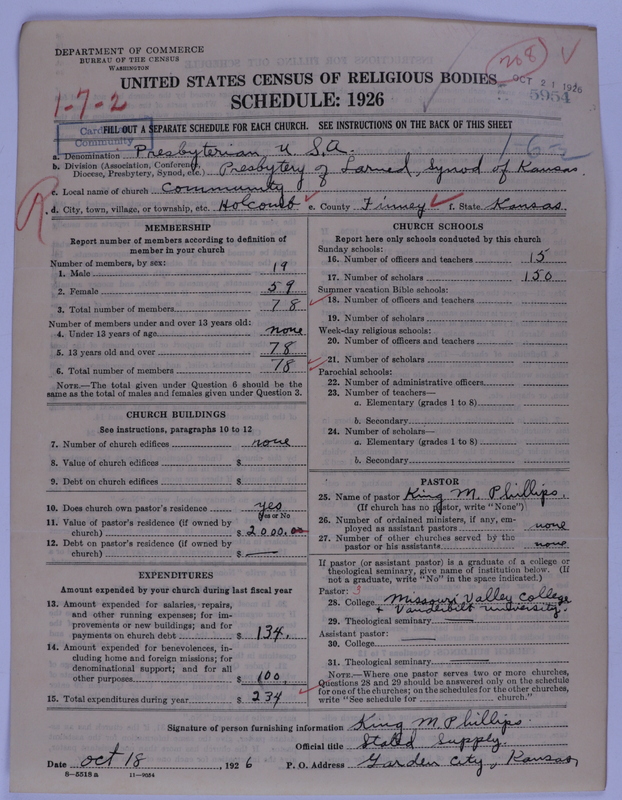 DEPARTMENT OF COMMERCE
BUREAU OF THE CENSUS
WASHINGTON
UNITED STATES CENSUS OF RELIGIOUS BODIES
SCHEDULE: 1926
268 V
OCT 21 1926
5954
1-7-2
FILL OUT A SEPARATE SCHEDULE FOR EACH CHURCH. SEE INSTRUCTIONS ON THE BACK OF THIS SHEET
Card
Community
R
a. Denomination Presbyterian U.S.A.
b. Division (Association, Conference, Diocese, Presbytery, Synod, etc.) Presbytery of Larned, Synod of Kansas.
c. Local name of church Community
d. City, town, village, or township, etc. Holcomb e. County Finney f. State Kansas.
MEMBERSHIP
Report number of members according to definition of
member in your church
Number of members, by sex:
1. Male 19
2. Female 59
3. Total number of members 78
Number of members under and over 13 years old:
4. Under 13 years of age none
5. 13 years old and over 78
6. Total number of members 78
NOTE.—The total given under Question 6 should be the
same as the total of males and females given under Question 3.
CHURCH BUILDINGS
See instructions, paragraphs 10 to 12
7. Number of church edifices none
8. Value of church edifices $
9. Debt on church edifices $
10. Does church own pastor's residence yes
Yes or No
11. Value of pastor's residence (if owned by
church) $ 2000.00
12. Debt on pastor's residence (if owned by
church) $ —
EXPENDITURES
Amount expended by your church during last fiscal year
13. Amount expended for salaries, repairs,
and other running expenses; for im-
provements or new buildings; and for
payments on church debt $ 134.
14. Amount expended for benevolences, in-
cluding home and foreign missions; for
denominational support; and for all
other purposes $ 100.
15. Total expenditures during year $ 234
CHURCH SCHOOLS
Report here only schools conducted by this church
Sunday schools:
16. Number of officers and teachers 15
17. Number of scholars 150
Summer vacation Bible schools:
18. Number of officers and teachers
19. Number of scholars
Week-day religious schools:
20. Number of officers and teachers
21. Number of scholars
Parochial schools:
22. Number of administrative officers
23. Number of teachers—
a. Elementary (grades 1 to 8)
b. Secondary
24. Number of scholars—
a. Elementary (grades 1 to 8)
b. Secondary
PASTOR
25. Name of pastor King M. Phillips.
(If church has no pastor, write "None")
26. Number of ordained ministers, if any, em-
ployed as assistant pastors none
27. Number of other churches served by the
pastor or his assistants none
If pastor (or assistant pastor) is a graduate of a college or
theological seminary, give name of institution below. (If
not a graduate, write "No" in the space indicated.)
Pastor: 3
28. College Missouri Valley College
+ Vanderbilt University.
29. Theological seminary —
Assistant pastor:
30. College —
31. Theological seminary —
NOTE.—Where one pastor serves two or more churches,
Questions 28 and 29 should be answered only on the schedule
for one of the churches; on the schedules for the other churches,
write "See schedule for church."
Signature of person furnishing information King M. Phillips
Official title Stated Supply.
Date Oct 18, 1926 P. O. Address Garden City, Kansas
8-5518a 11-9054